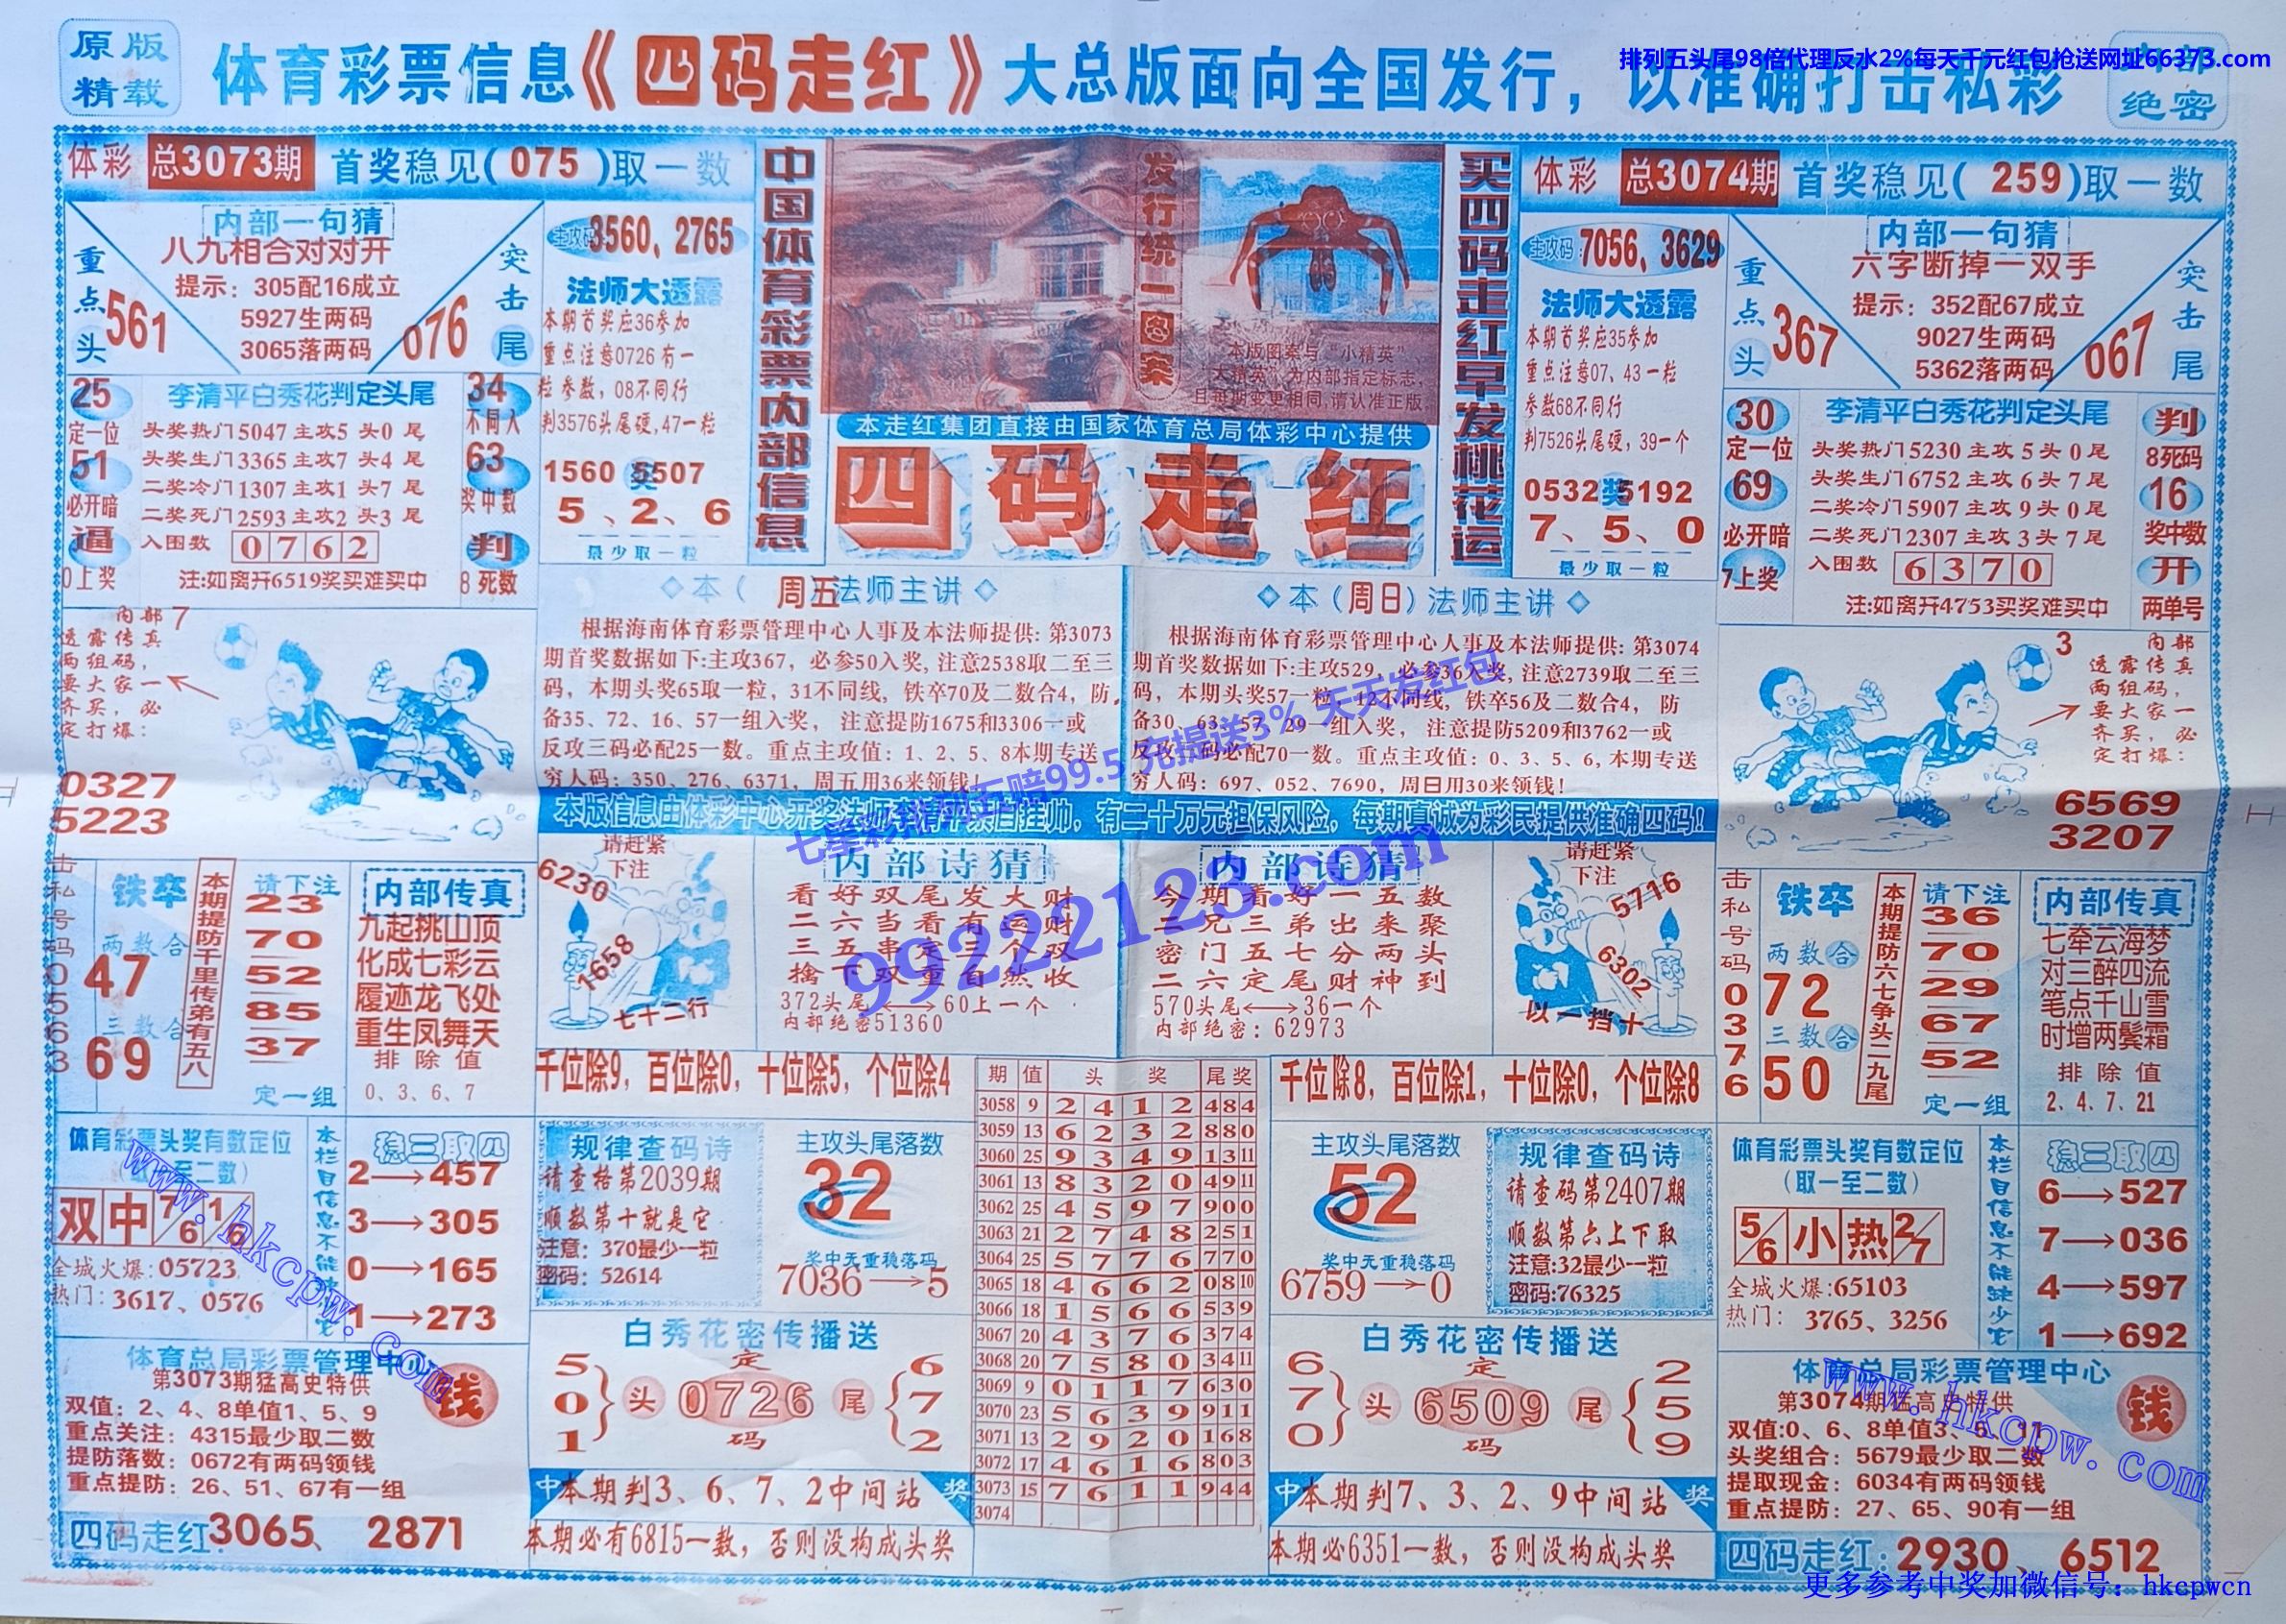 原版
精载
体育彩票信息《四码走红》大总版面向全国发行，以准确打击私彩
排列五头尾98倍代理反水2%每天千元红包抢送网址66373.com
内部
绝密
体彩 总3073期 首奖稳见(075)取一数
内部一句猜
八九相合对对开
提示：305配16成立
5927生两码
3065落两码
重点头
561
突击尾
076
主攻码 3560、2765
法师大透露
本期首奖应36参加
重点注意0726有一
粒参数，08不同行
判3576头尾硬,47一粒
1560奖5507
5、2、6
最少取一粒
25
定一位
51
必开暗
逼
0上奖
李清平白秀花判定头尾
头奖热门5047主攻5 头0 尾
头奖生门3365主攻7 头4 尾
二奖冷门1307主攻1 头7 尾
二奖死门2593主攻2 头3 尾
入围数 0762
注:如离开6519奖买难买中
34
不同入
63
奖中数
判
8死数
中国体育彩票内部信息
发行统一图案
本版图案与“小精英”
“大精英”为内部指定标志，
且每期变更相同,请认准正版
本走红集团直接由国家体育总局体彩中心提供
四码走红
买四码走红早发桃花运
体彩 总3074期 首奖稳见(259)取一数
主攻码:7056、3629
法师大透露
本期首奖应35参加
重点注意07、43一粒
参数68不同行
判7526头尾硬，39一个
0532奖5192
7、5、0
最少取一粒
内部一句猜
六字断掉一双手
提示：352配67成立
9027生两码
5362落两码
重点头
367
突击尾
067
30
定一位
69
必开暗
7上奖
李清平白秀花判定头尾
头奖热门5230主攻5头0尾
头奖生门6752主攻6头7尾
二奖冷门5907主攻9头0尾
二奖死门2307主攻3头7尾
入围数 6370
注:如离开4753买奖难买中
判
8死码
16
奖中数
开
两单号
内部 7
透露传真
两组码，
要大家一
齐买，必
定打爆：
0327
5223
◇本（周五法师主讲◇
根据海南体育彩票管理中心人事及本法师提供:第3073
期首奖数据如下:主攻367，必参50入奖,注意2538取二至三
码，本期头奖65取一粒，31不同线，铁卒70及二数合4，防
备35、72、16、57一组入奖，注意提防1675和3306一或
反攻三码必配25一数。重点主攻值：1、2、5、8本期专送
穷人码：350、276、6371，周五用36来领钱!
◇本（周日）法师主讲◇
根据海南体育彩票管理中心人事及本法师提供：第3074
期首奖数据如下:主攻529，必参36入奖,注意2739取二至三
码，本期头奖57一粒，12不同线，铁卒56及二数合4，防
备30、63、57、29一组入奖，注意提防5209和3762一或
反攻三码必配70一数。重点主攻值：0、3、5、6,本期专送
穷人码：697、052、7690，周日用30来领钱!
3 内部
透露传真
两组码，
要大家一
齐买，必
定打爆：
6569
3207
本版信息由体彩中心开奖法师李清平亲自挂帅，有二十万元担保风险，每期真诚为彩民提供准确四码！
七星彩排列五赔99.5 充提送3% 天天发红包
99222123.com
击私号码05663
铁卒
两数合
47
三数合
69
本期提防千里传弟有五八
请下注
23
70
52
85
37
定一组
内部传真
九起挑山顶
化成七彩云
履迹龙飞处
重生凤舞天
排除值
0、3、6、7
请赶紧
下注
6230
1658
七十二行
内部诗猜
看好双尾发大财
二六当看有运财
三五串定三个双
擒下双重自然收
372头尾⟷60上一个
内部绝密51360
内部诗猜
今期着好一五数
二兄三弟出来聚
密门五七分两头
二六定尾财神到
570头尾⟷36一个
内部绝密：62973
请赶紧
下注
5716
6302
以一挡十
击私号码0376
铁卒
两数合
72
三数合
50
本期提防六七争头二九尾
请下注
36
70
29
67
52
定一组
内部传真
七牵云海梦
对三醉四流
笔点千山雪
时增两鬓霜
排除值
2、4、7、21
千位除9，百位除0，十位除5，个位除4
千位除8，百位除1，十位除0，个位除8
期 值 头奖 尾奖
3058 9 2 4 1 2 484
3059 13 6 2 3 2 880
3060 25 9 3 4 9 1311
3061 13 8 3 2 0 4911
3062 25 4 5 9 7 900
3063 21 2 7 4 8 251
3064 25 5 7 7 6 770
3065 18 4 6 6 2 0810
3066 18 1 5 6 6 539
3067 20 4 3 7 6 374
3068 20 7 5 8 0 3411
3069 9 0 1 1 7 630
3070 23 5 6 3 9 911
3071 13 2 9 2 0 168
3072 17 4 6 1 6 803
3073 15 7 6 1 1 944
3074
体育彩票头奖有数定位
（取一至二数）
双中 7/6 1/6
全城火爆:05723
热门：3617、0576
本栏目信息不能缺少它
稳三取四
2→457
3→305
0→165
1→273
规律查码诗
请查格第2039期
顺数第十就是它
注意：370最少一粒
密码：52614
主攻头尾落数
32
奖中无重稳落码
7036→5
主攻头尾落数
52
奖中无重稳落码
6759→0
规律查码诗
请查码第2407期
顺数第六上下取
注意:32最少一粒
密码:76325
体育彩票头奖有数定位
（取一至二数）
5/6 小热 2/7
全城火爆:65103
热门：3765、3256
本栏目信息不能缺少它
稳三取四
6→527
7→036
4→597
1→692
体育总局彩票管理中心
第3073期猛高史特供
双值：2、4、8单值1、5、9
重点关注：4315最少取二数
提防落数：0672有两码领钱
重点提防：26、51、67有一组
钱
四码走红:3065、2871
白秀花密传播送
501
头
定
0726
码
尾
672
中 本期判3、6、7、2中间站 奖
本期必有6815一数，否则没构成头奖
白秀花密传播送
670
头
定
6509
码
尾
259
中 本期判7、3、2、9中间站 奖
本期必6351一数，否则没构成头奖
体育总局彩票管理中心
第3074期猛高史特供
双值:0、6、8单值3、5、11
头奖组合：5679最少取二数
提取现金：6034有两码领钱
重点提防：27、65、90有一组
钱
四码走红:2930、6512
www.hkcpw.com
www.hkcpw.com
更多参考中奖加微信号：hkcpwcn